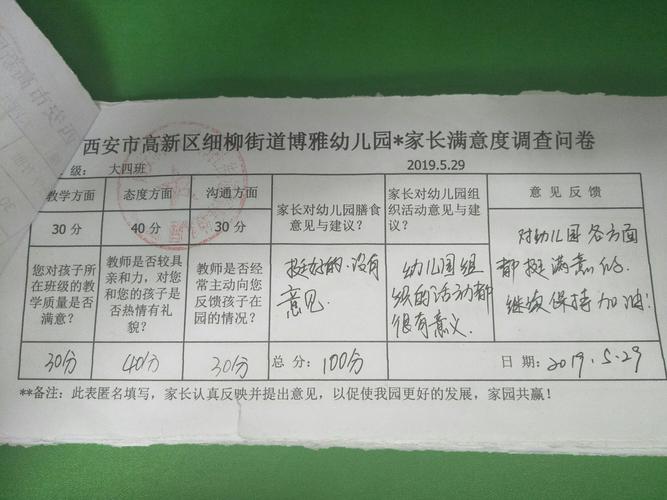 西安市高新区细柳街道博雅幼儿园*家长满意度调查问卷
级：大四班 2019.5.29
教学方面 态度方面 沟通方面 家长对幼儿园膳食意见与建议？ 家长对幼儿园组织活动意见与建议？ 意见反馈
30分 40分 30分
您对孩子所在班级的教学质量是否满意？
教师是否较具亲和力，对您和您的孩子是否热情有礼貌？
教师是否经常主动向您反馈孩子在园的情况？
挺好的.没有
意见.
幼儿园组
织的活动都
很有意义.
对幼儿园各方面
都挺满意的.
继续保持加油!
30分 40分 30分 总分：100分 日期：2019.5.29
**备注：此表匿名填写，家长认真反映并提出意见，以促使我园更好的发展，家园共赢！